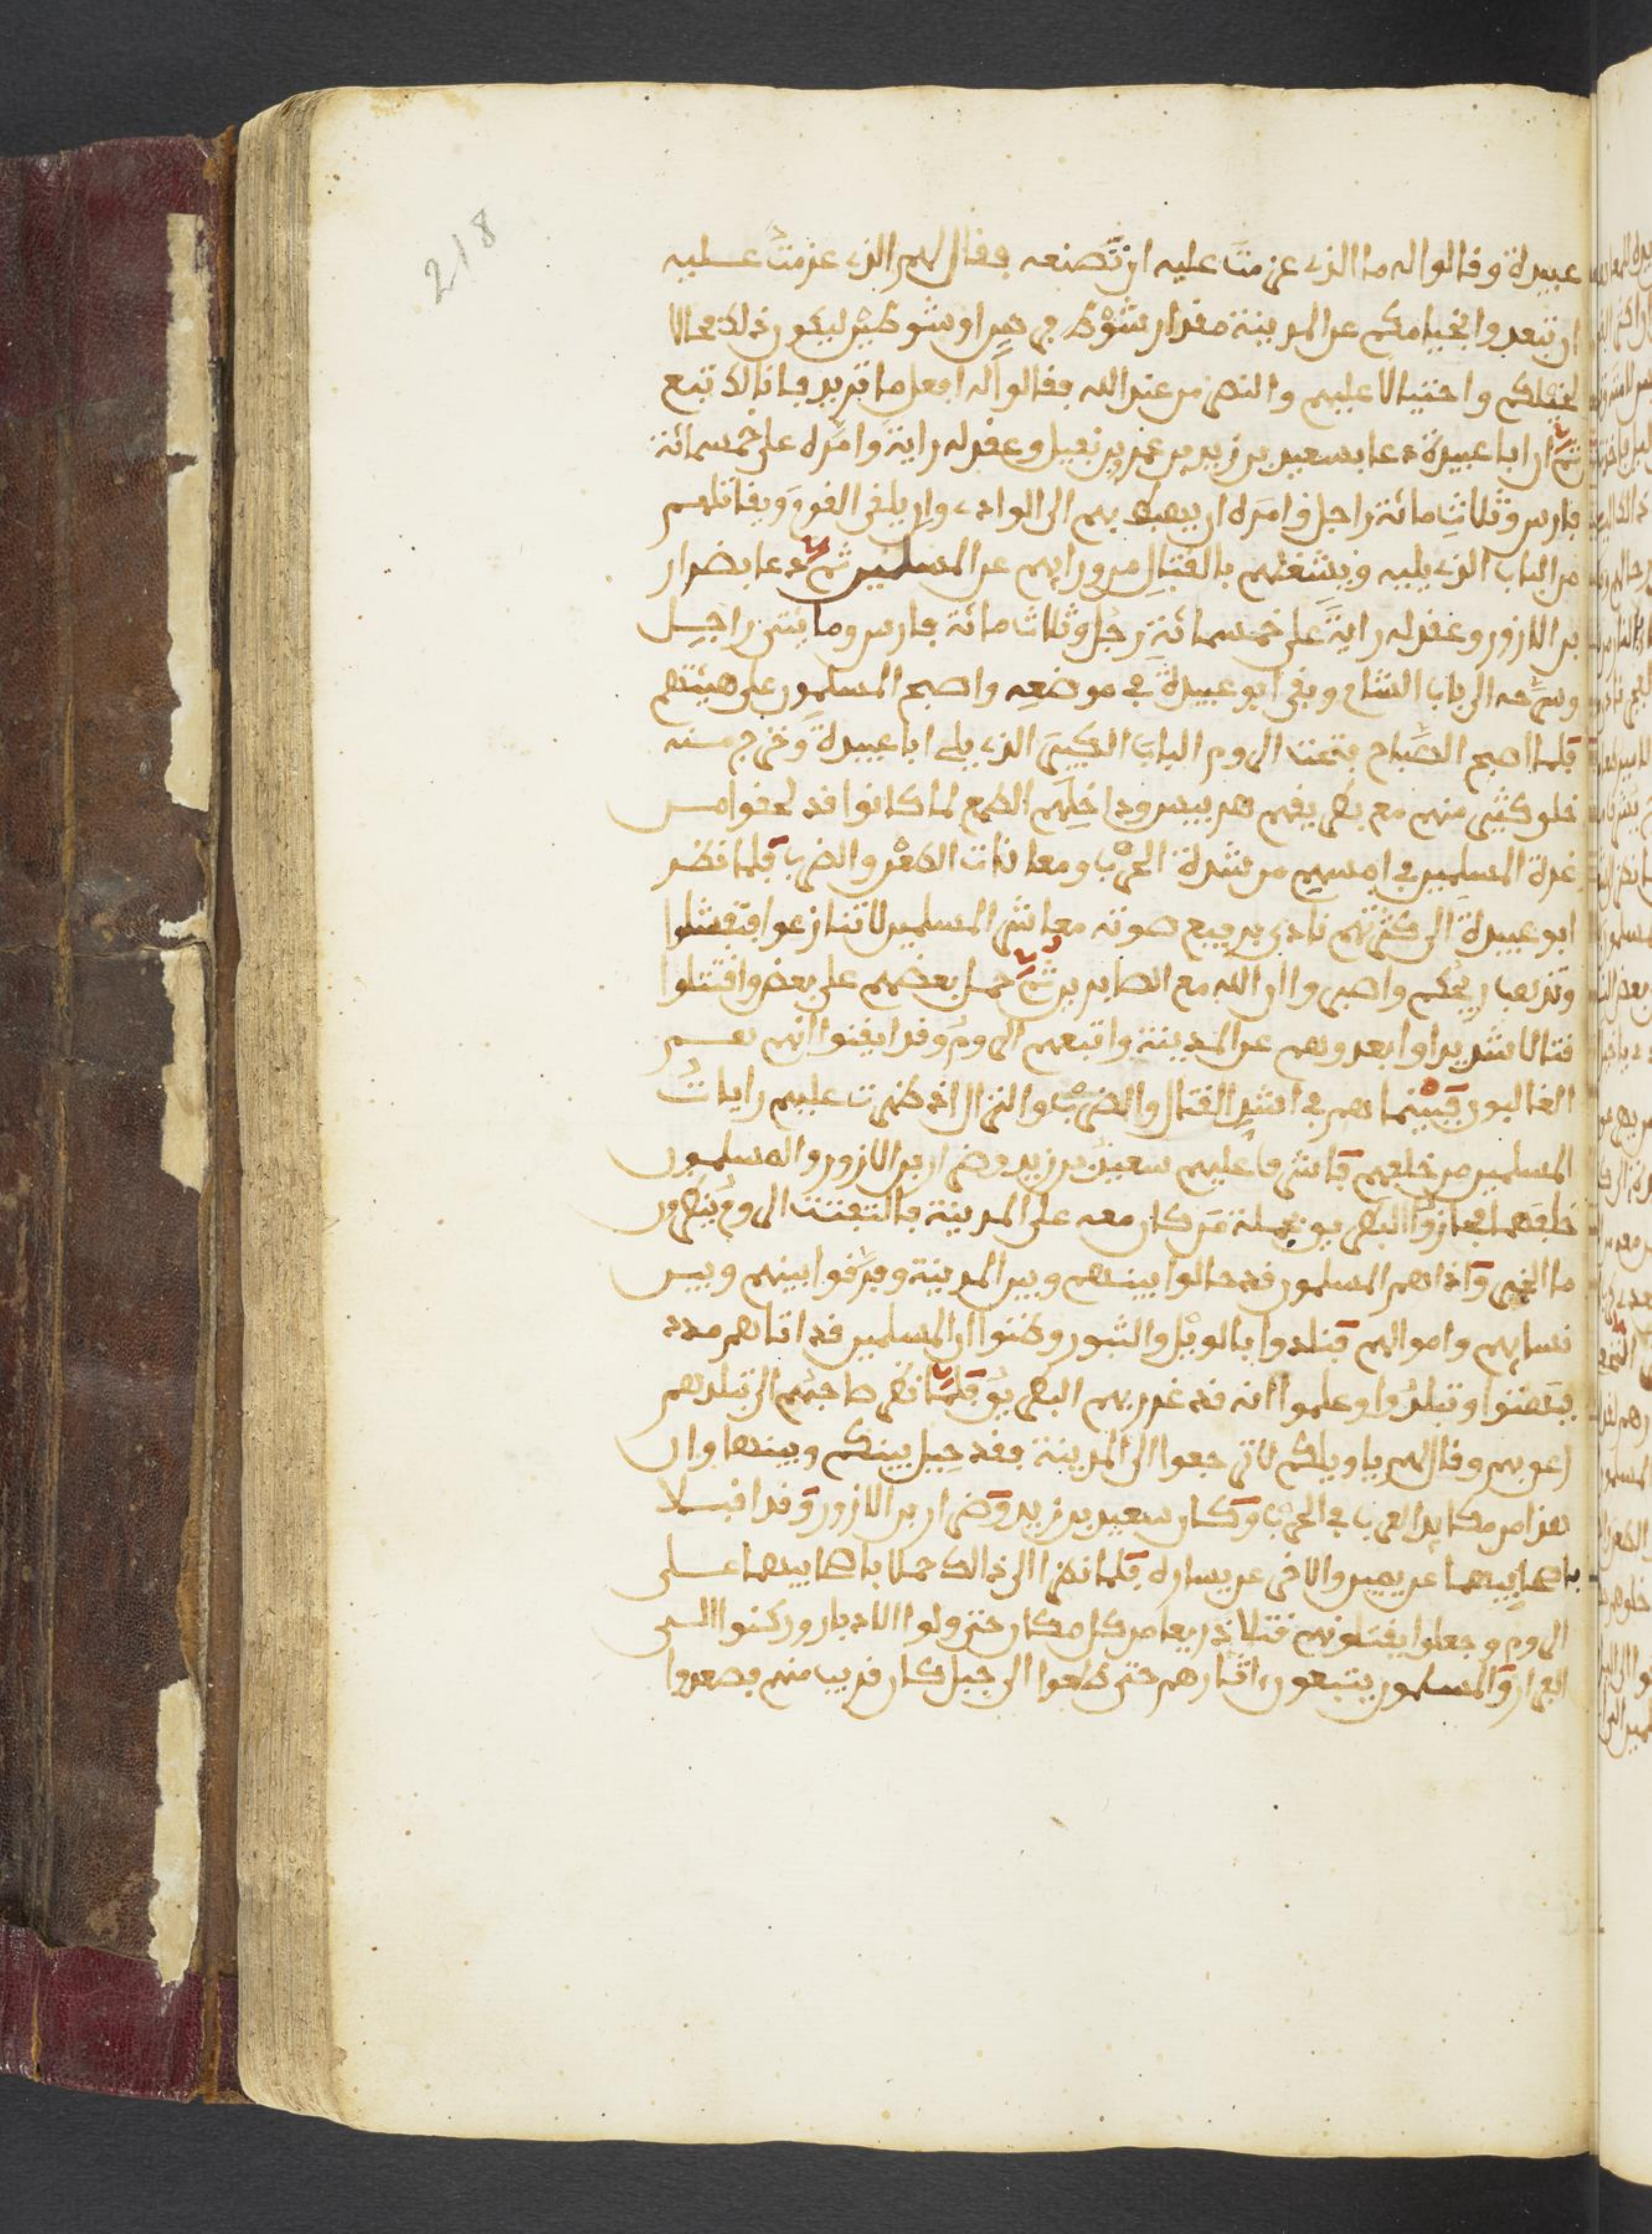 218
عبيدة وقالوا له ما الذي عزمت عليه ان تصنعه فقال لهم الذي عزمت عليه
ان تبعدوا بخيامكم عن المدينة مقدار شوط فرس او شوطين ليكون ذلك مجالا
لخيلكم واحتيالا عليهم والنصر من عند الله فقالوا له افعل ما تريد فانا لك تبع
ثم ان ابا عبيدة دعا بسعيد بن زيد بن عمر بن نفيل وعقد له راية وامره على خمسمائة
فارس وثلاث مائة راجل وامره ان يهبط بهم الى الوادي وان يلقى القوم ويقاتلهم
من الباب الذي يليه ويشغلهم بالقتال من ورايهم عن المسلمين ثم دعا بضرار
بن الازور وعقد له راية على خمسمائة رجل وثلاث مائة فارس ومايتى راجل
وسرحه الى باب الشام وبقى ابو عبيدة في موضعه واصبح المسلمون على هيئتهم
فلما اصبح الصباح فتحت الروم الباب الكبير الذي يلي ابا عبيدة وخرج منه
خلق كثير منهم مع بطريقهم هربيس وداخلهم الطمع لما كانوا قد لحقوا من
غدة المسلمين في امسهم من شدة الحرب ومعانات الطعن والضرب فلما نظر
ابو عبيدة الى كثرتهم نادى برفيع صوته معاشر المسلمين لا تنازعوا فتفشلوا
وتذهب ريحكم واصبروا ان الله مع الصابرين ثم حمل بعضهم على بعض واقتتلوا
قتالا شديدا وابعدوهم عن المدينة واتبعهم الروم وقد ايقنوا انهم هم
الغالبون فبينما هم في اشد القتال والضرب والنزال اذ ظهرت عليهم رايات
المسلمين من خلفهم فاشرف عليهم سعيد بن زيد وضرار بن الازور والمسلمون
خلفهما فجازوا البطريق بجملة من كان معه على المدينة فالتفتت الروم ينظرون
ما الخبر واذا هم المسلمون قد حالوا بينهم وبين المدينة وفرقوا بينهم وبين
نسايهم واموالهم فنادوا بالويل والثبور وظنوا ان المسلمين قد اتاهم مدد
فبهتوا وتبلدوا وعلموا انه قد غدر بهم البطريق فلما نظر صاحبهم الى تبلدهم
زعق بهم وقال لهم يا ويلكم لا ترجعوا الى المدينة فقد حيل بينكم وبينها وان
هذا من مكايد العرب في الحرب وكان سعيد بن زيد وضرار بن الازور وقد اقبلا
باصحابيهما عن يمين والاخر عن يساره فلما نظرا الى ذالك حملا باصحابيهما على
الروم وجعلوا يقتلونهم قتلا ذريعا من كل مكان حتى ولوا الادبار وركنوا الى
الفرار والمسلمون يتبعون اثارهم حتى طلعوا الى جبل كان قريب منهم فصعدوا